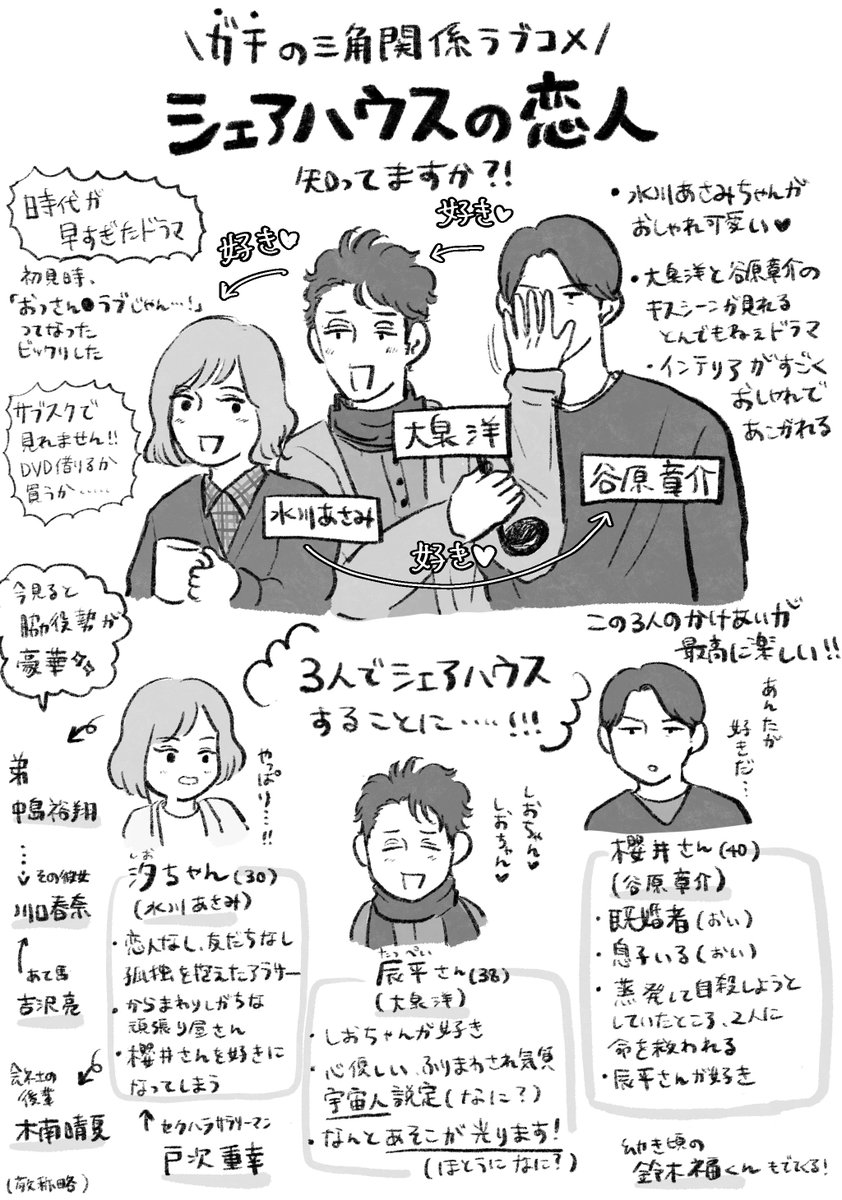 \ガチの三角関係ラブコメ/
シェアハウスの恋人
知ってますか?!
時代が
早すぎたドラマ
初見時、
「おっさん●ラブじゃん…!」
ってなった
ビックリした
サブスクで
見れません!!
DVD借りるか
買うか……
好き♡
好き♡
・水川あさみちゃんが
おしゃれ可愛い♥
・大泉洋と谷原章介の
キスシーンが見れる
とんでもねぇドラマ
・インテリアがすごく
おしゃれで
あこがれる
大泉洋
谷原章介
水川あさみ
好き♡
この3人のかけあいが
最高に楽しい!!
今見ると
脇役勢が
豪華
3人でシェアハウス
することに……!!!
弟
中島裕翔
その彼女
川口春奈
あて馬
吉沢亮
会社の
後輩
木南晴夏
(敬称略)
やっぱり…!!
しお
汐ちゃん(30)
(水川あさみ)
・恋人なし、友だちなし
孤独を抱えたアラサー
・からまわりしがちな
頑張り屋さん
・櫻井さんを好きに
なってしまう
セクハラサラリーマン
戸次重幸
しおちゃん♡
しおちゃん♡
たっぺい
辰平さん(38)
(大泉洋)
・しおちゃんが好き
・心優しい、ふりまわされ気質
宇宙人設定(なに?)
・なんとあそこが光ります!
(ほとうになに?)
あんたが
好きだ…
櫻井さん(40)
(谷原章介)
・既婚者(おい)
・息子いる(おい)
・蒸発して自殺しようと
していたところ、2人に
命を救われる
・辰平さんが好き
幼き頃の
鈴木福くんもでてくる!